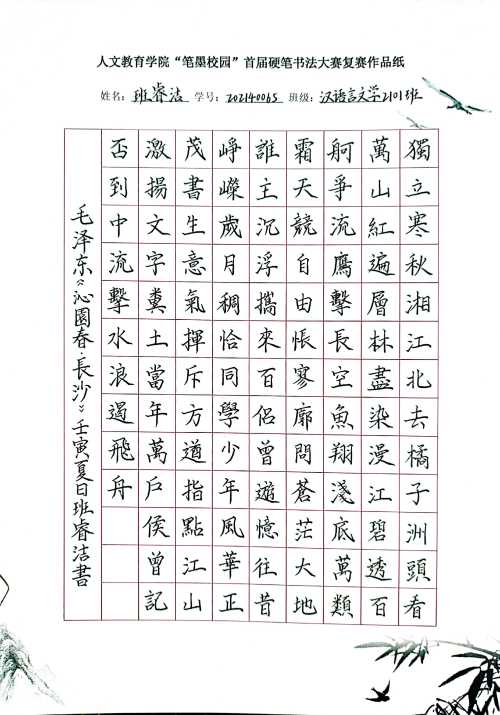 人文教育学院“笔墨校园”首届硬笔书法大赛复赛作品纸
姓名：班睿洁 学号：202140065 班级：汉语言文学2101班
獨立寒秋湘江北去橘子洲頭看
萬山紅遍層林盡染漫江碧透百
舸爭流鷹擊長空魚翔淺底萬類
霜天競自由悵寥廓問蒼茫大地
誰主沉浮攜來百侶曾遊憶往昔
崢嶸歲月稠恰同學少年風華正
茂書生意氣揮斥方遒指點江山
激揚文字糞土當年萬戶侯曾記
否到中流擊水浪遏飛舟
毛泽东《沁園春·長沙》壬寅夏日班睿洁書